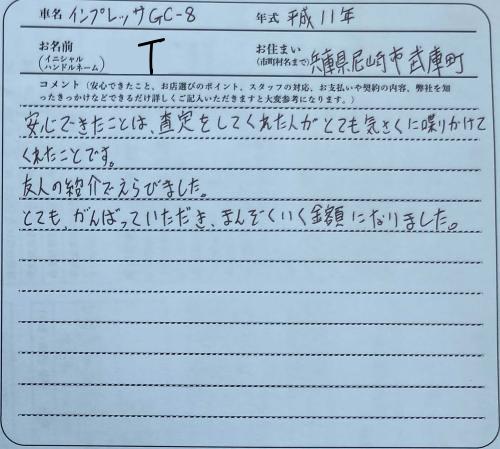 車名 インプレッサGC-8 年式 平成11年
お名前 (イニシャル ハンドルネーム) T お住まい (市町村名まで) 兵庫県尼崎市武庫町
コメント(安心できたこと、お店選びのポイント、スタッフの対応、お支払いや契約の内容、弊社を知
ったきっかけなどできるだけ詳しくご記入いただきますと大変参考になります。)
安心できたことは、査定をしてくれた人がとても気さくに喋りかけて
くれたことです。
友人の紹介でえらびました。
とても、がんばっていただき、まんぞくいく金額になりました。